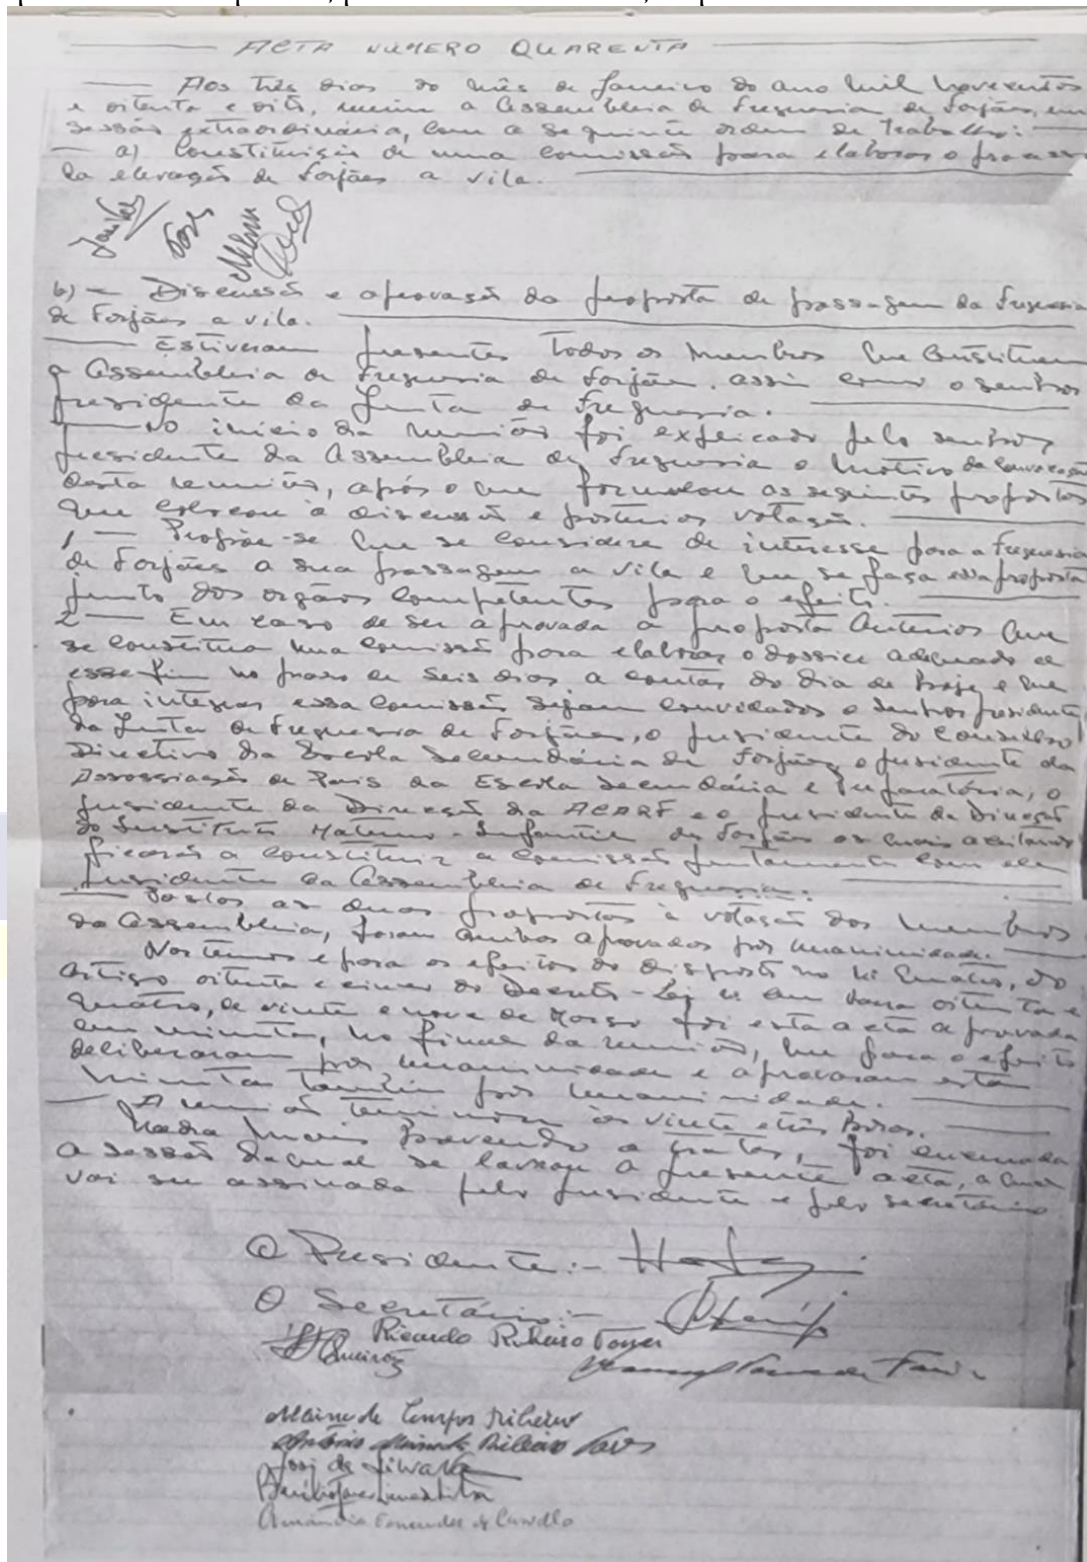 ACTA NÚMERO QUARENTA
Aos três dias do mês de Janeiro do ano mil novecentos
e oitenta e oito, reuniu a Assembleia de Freguesia de Forjães, em
sessão extraordinária, com a seguinte ordem de trabalhos:
a) Constituição de uma comissão para elaborar o processo
da elevação de Forjães a vila.
b) — Discussão e aprovação da proposta de passagem da Freguesia
de Forjães a vila.
Estiveram presentes todos os membros que constituem
a Assembleia de Freguesia de Forjães, assim como o senhor
presidente da Junta de Freguesia.
No início da reunião foi explicado pelo senhor
presidente da Assembleia de Freguesia o motivo da convocação
desta reunião, após o que formulou as seguintes propostas
que colocou à discussão e posterior votação.
1 — Propõe-se que se considere de interesse para a Freguesia
de Forjães a sua passagem a vila e que se faça essa proposta
junto dos orgãos competentes para o efeito.
2 — Em caso de ser aprovada a proposta anterior que
se constitua uma comissão para elaborar o dossier adequado a
esse fim no prazo de seis dias a contar do dia de hoje, e que
para integrar essa comissão sejam convidados o senhor presidente
da Junta de Freguesia de Forjães, o presidente do Conselho
Directivo da Escola Secundária de Forjães, o presidente da
Assossiação de Pais da Escola Secundária e Preparatória, o
presidente da Direcção da ACARF e o presidente da Direcção
do Instituto Materno-Infantil de Forjães os quais aceitando
ficarão a constituir a comissão juntamente com ele
presidente da Assembleia de Freguesia.
Postas as duas propostas à votação dos membros
da Assembleia, foram ambas aprovadas por unanimidade.
Nos termos e para os efeitos do disposto no nº quatro, do
artigo oitenta e cinco do Decreto-Lei nº cem barra oitenta e
quatro, de vinte e nove de Março foi esta acta aprovada
em minuta, no final da reunião, que para o efeito
deliberaram por unanimidade e aprovaram esta
minuta também por unanimidade.
A reunião terminou às vinte e três horas.
Nada mais havendo a tratar, foi encerrada
a sessão da qual se lavrou a presente acta, a qual
vai ser assinada pelo presidente e pelo secretário.
O Presidente:-
O Secretário:-
Ricardo Ribeiro Torres
Queiróz
Mário de Campos Ribeiro
Ribeiro
José da Silva
Fernandes de Carvalho